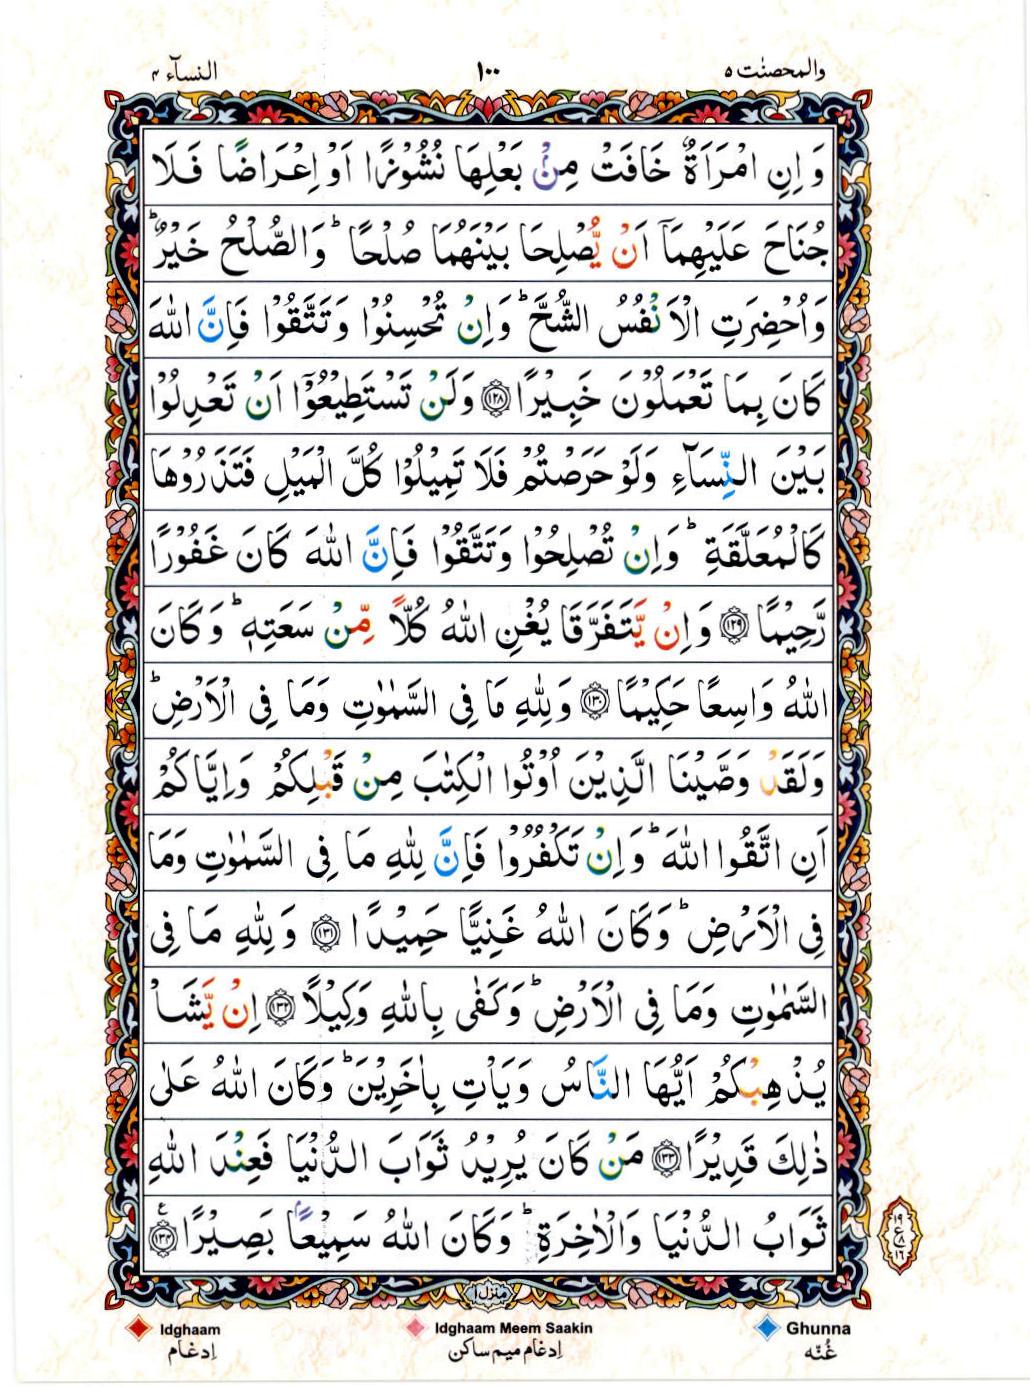 والمحصنٰت ٥ ١٠٠ النسآء ٤
وَ اِنِ امْرَاَةٌ خَافَتْ مِنْۢ بَعْلِهَا نُشُوْزًا اَوْ اِعْرَاضًا فَلَا
جُنَاحَ عَلَيْهِمَاۤ اَنْ يُّصْلِحَا بَيْنَهُمَا صُلْحًا ؕ وَالصُّلْحُ خَيْرٌ ؕ
وَاُحْضِرَتِ الْاَنْفُسُ الشُّحَّ ؕ وَاِنْ تُحْسِنُوْا وَتَتَّقُوْا فَاِنَّ اللّٰهَ
كَانَ بِمَا تَعْمَلُوْنَ خَبِيْرًا ﴿١٢٨﴾ وَلَنْ تَسْتَطِيْعُوْۤا اَنْ تَعْدِلُوْا
بَيْنَ النِّسَآءِ وَلَوْ حَرَصْتُمْ فَلَا تَمِيْلُوْا كُلَّ الْمَيْلِ فَتَذَرُوْهَا
كَالْمُعَلَّقَةِ ؕ وَاِنْ تُصْلِحُوْا وَتَتَّقُوْا فَاِنَّ اللّٰهَ كَانَ غَفُوْرًا
رَّحِيْمًا ﴿١٢٩﴾ وَاِنْ يَّتَفَرَّقَا يُغْنِ اللّٰهُ كُلًّا مِّنْ سَعَتِهٖ ؕ وَكَانَ
اللّٰهُ وَاسِعًا حَكِيْمًا ﴿١٣٠﴾ وَلِلّٰهِ مَا فِى السَّمٰوٰتِ وَمَا فِى الْاَرْضِ ؕ
وَلَقَدْ وَصَّيْنَا الَّذِيْنَ اُوْتُوا الْكِتٰبَ مِنْ قَبْلِكُمْ وَاِيَّاكُمْ
اَنِ اتَّقُوا اللّٰهَ ؕ وَاِنْ تَكْفُرُوْا فَاِنَّ لِلّٰهِ مَا فِى السَّمٰوٰتِ وَمَا
فِى الْاَرْضِ ؕ وَكَانَ اللّٰهُ غَنِيًّا حَمِيْدًا ﴿١٣١﴾ وَلِلّٰهِ مَا فِى
السَّمٰوٰتِ وَمَا فِى الْاَرْضِ ؕ وَكَفٰى بِاللّٰهِ وَكِيْلًا ﴿١٣٢﴾ اِنْ يَّشَاْ
يُذْهِبْكُمْ اَيُّهَا النَّاسُ وَيَاْتِ بِاٰخَرِيْنَ ؕ وَكَانَ اللّٰهُ عَلٰى
ذٰلِكَ قَدِيْرًا ﴿١٣٣﴾ مَنْ كَانَ يُرِيْدُ ثَوَابَ الدُّنْيَا فَعِنْدَ اللّٰهِ
ثَوَابُ الدُّنْيَا وَالْاٰخِرَةِ ؕ وَكَانَ اللّٰهُ سَمِيْعًۢا بَصِيْرًا ﴿١٣٤﴾ ع
١٩
ع ٨
١٦
منزل ١
Idghaam Idghaam Meem Saakin Ghunna
اِدغام اِدغام میم ساکن غُنّه